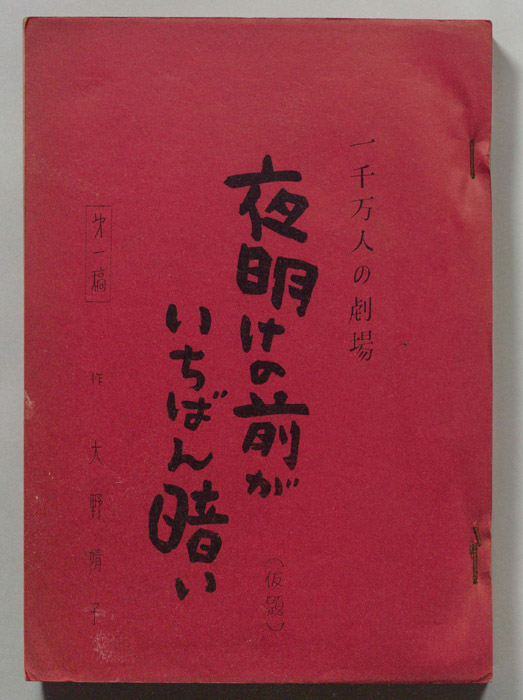 一千万人の劇場
夜明けの前が
いちばん暗い
（仮題）
［第一稿］
作 大野靖子